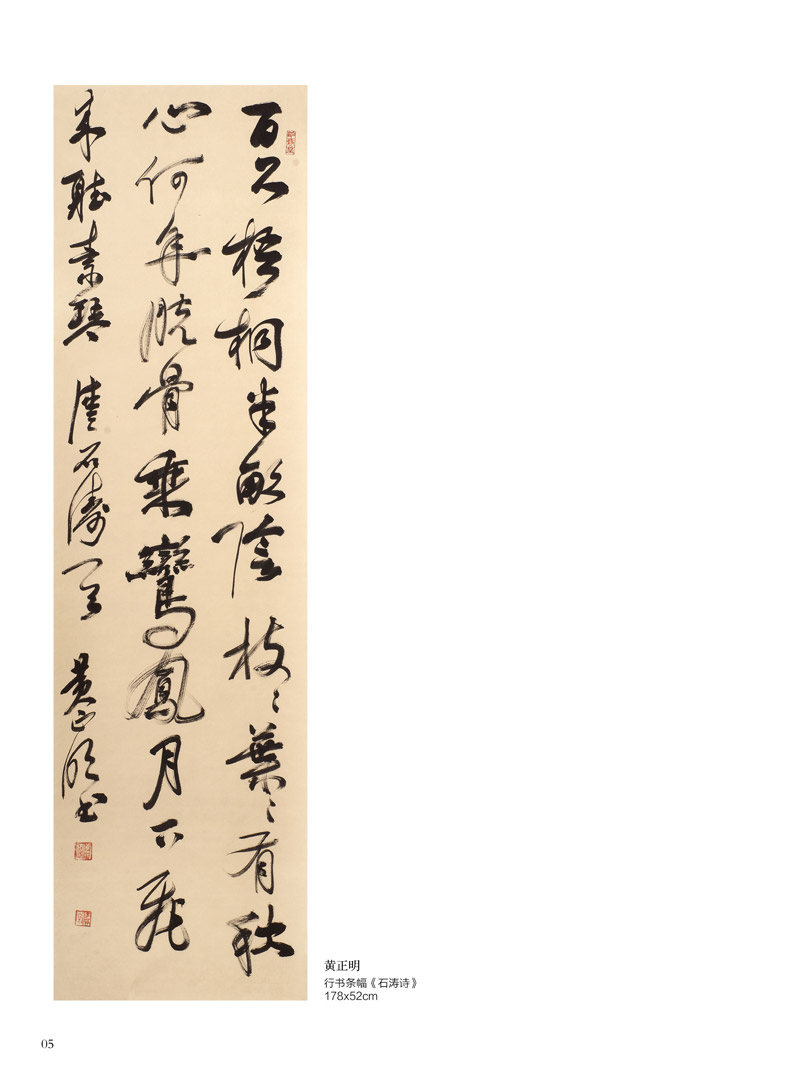 百尺梧桐半畝陰枝〻葉〻有秋
心何年脫骨乘鸞鳳月下飛
來聽素琴 清石濤一首 黃正明書
黄正明
行书条幅《石涛诗》
178x52cm
05